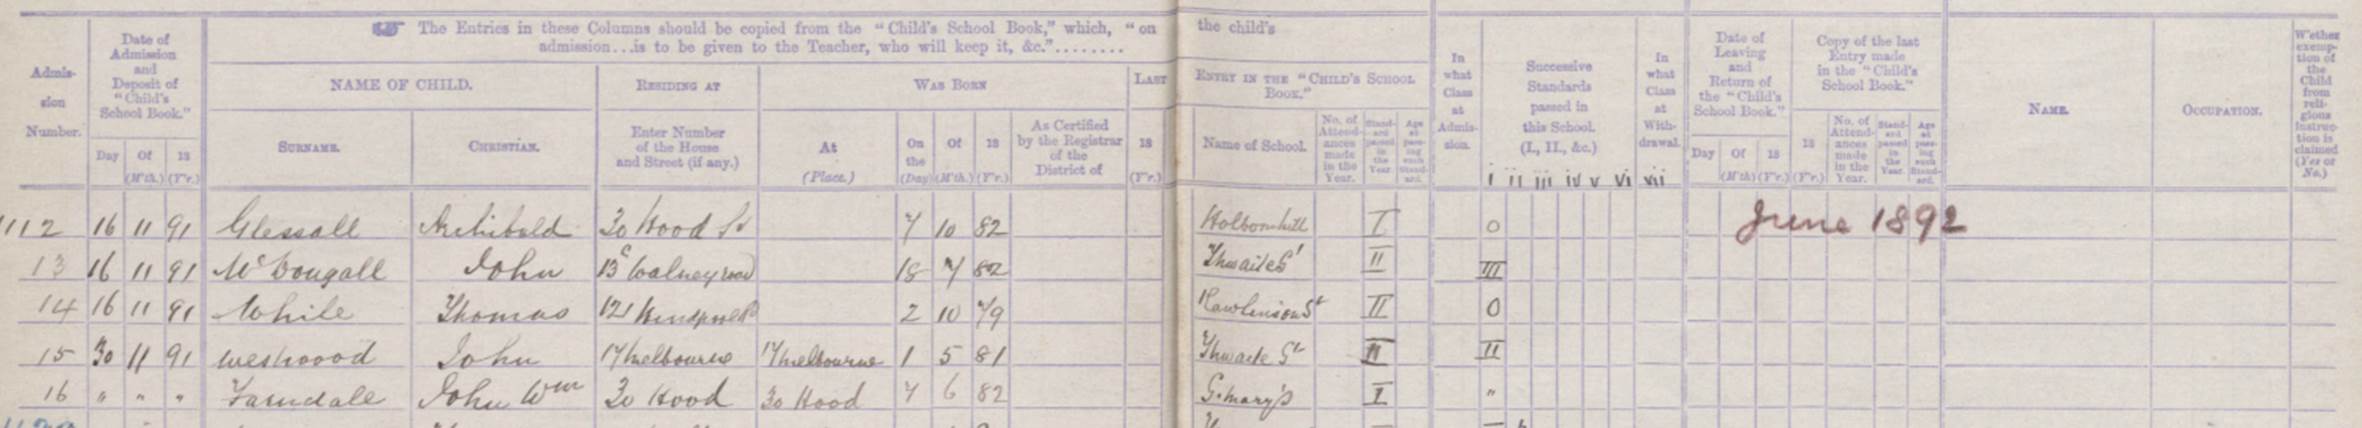 ☞ The Entries in these Columns should be copied from the "Child's School Book," which, "on the child's
admission...is to be given to the Teacher, who will keep it, &c."........
Admis-sion Number.
Date of Admission and Deposit of "Child's School Book."
Day Of (M'th.) 18 (Y'r.)
NAME OF CHILD.
SURNAME. CHRISTIAN.
RESIDING AT
Enter Number of the House and Street (if any.)
WAS BORN
At (Place.) On the (Day) Of (M'th.) 18 (Y'r.) As Certified by the Registrar of the District of
LAST
18 (Y'r.)
ENTRY IN THE "CHILD'S SCHOOL BOOK."
Name of School. No. of Attend-ances made in the Year. Stand-ard passed in the Year. Age at pass-ing each Stand-ard.
In what Class at Admis-sion.
Successive Standards passed in this School. (I., II., &c.)
i ii iii iv v vi vii
In what Class at With-drawal.
Date of Leaving and Return of the "Child's School Book."
Day Of (M'th) 18 (Y'r.)
Copy of the last Entry made in the "Child's School Book."
18 (Y'r.) No. of Attend-ances made in the Year. Stand-ard passed in the Year. Age at pass-ing each Stand-ard.
NAME. OCCUPATION.
W'ether exemp-tion of the Child from reli-gious instruc-tion is claimed (Yes or No.)
1112 16 11 91 Glessall Archibald 30 Hood St 7 10 82 Holbornhill I 0 June 1892
13 16 11 91 McDougall John 13 Walney road 18 7 82 Thwaite St II III
14 16 11 91 While Thomas 121 2 10 79 Rawlinson St II 0
15 30 11 91 Westwood John 17 Melbourne 17 Melbourne 1 5 81 Thwaite St II II
16 " " " Farndale John Wm 30 Hood 30 Hood 7 6 82 St. Mary's I "